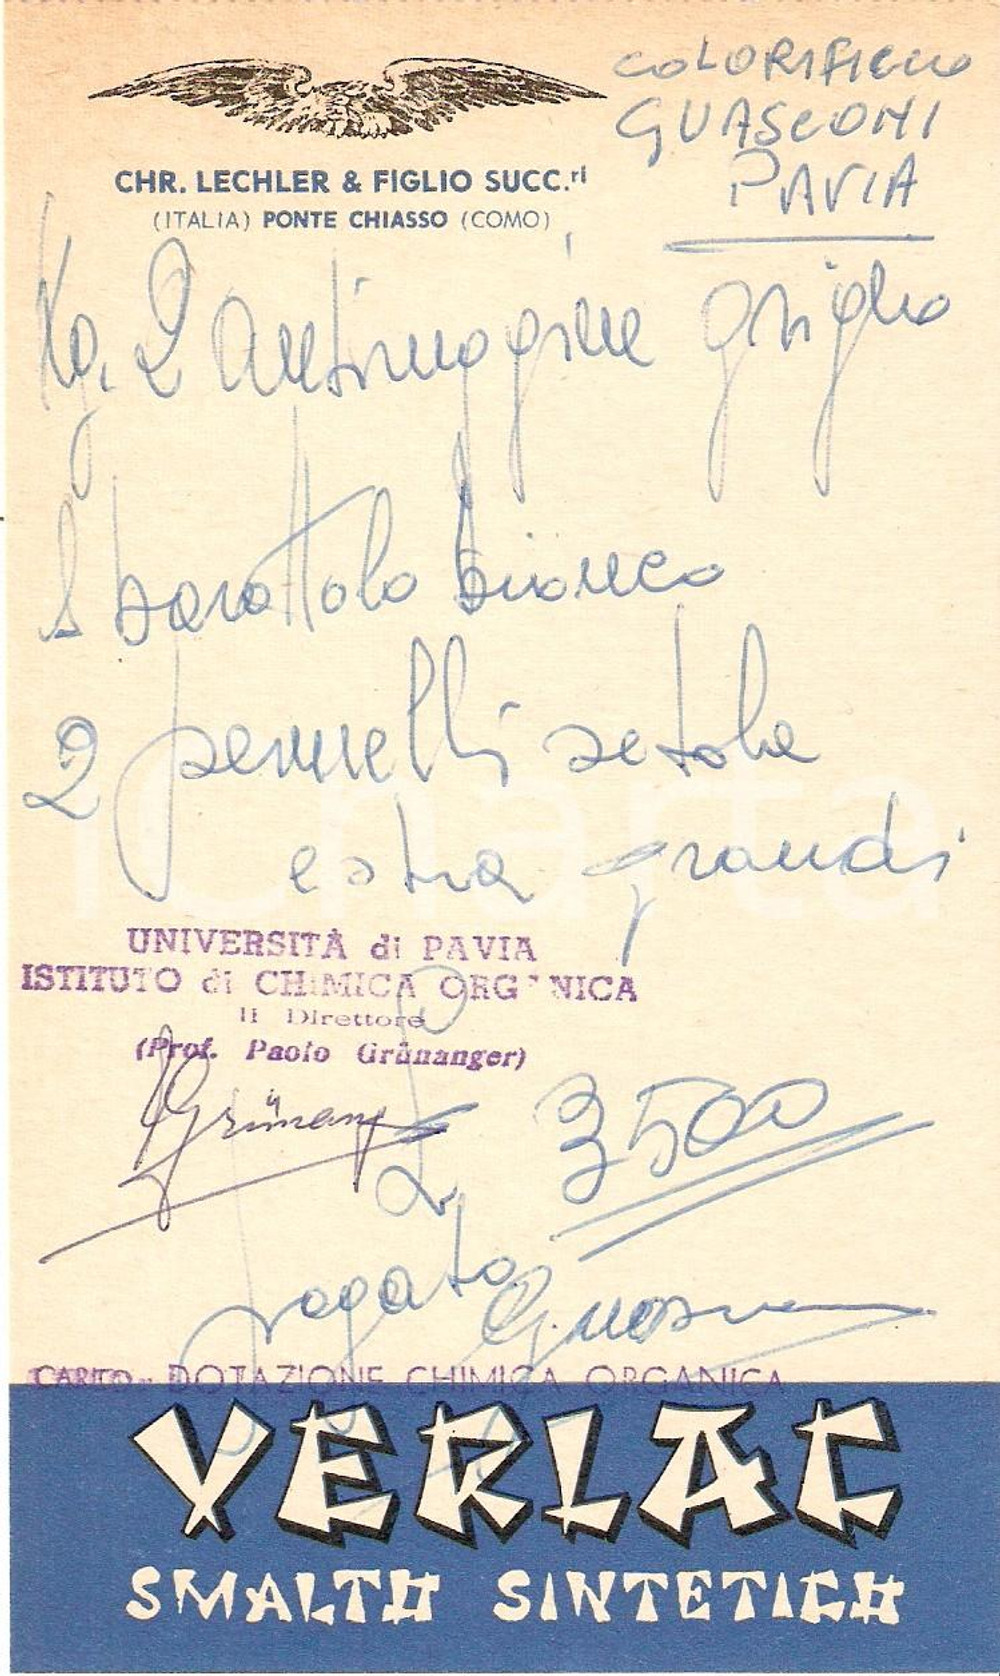 COLORIFICIO
GUASCONI
PAVIA
CHR. LECHLER & FIGLIO SUCC.ri
(ITALIA) PONTE CHIASSO (COMO)
Kg. 2 antiruggine griglio
1 barattolo bianco
2 pennelli setola
estra grandi
UNIVERSITÀ di PAVIA
ISTITUTO di CHIMICA ORGANICA
Il Direttore
(Prof. Paolo Grünanger)
Grünanger
£ 3500
pagato
Guasconi
CARICO: DOTAZIONE CHIMICA ORGANICA
VERLAC
SMALTO SINTETICO